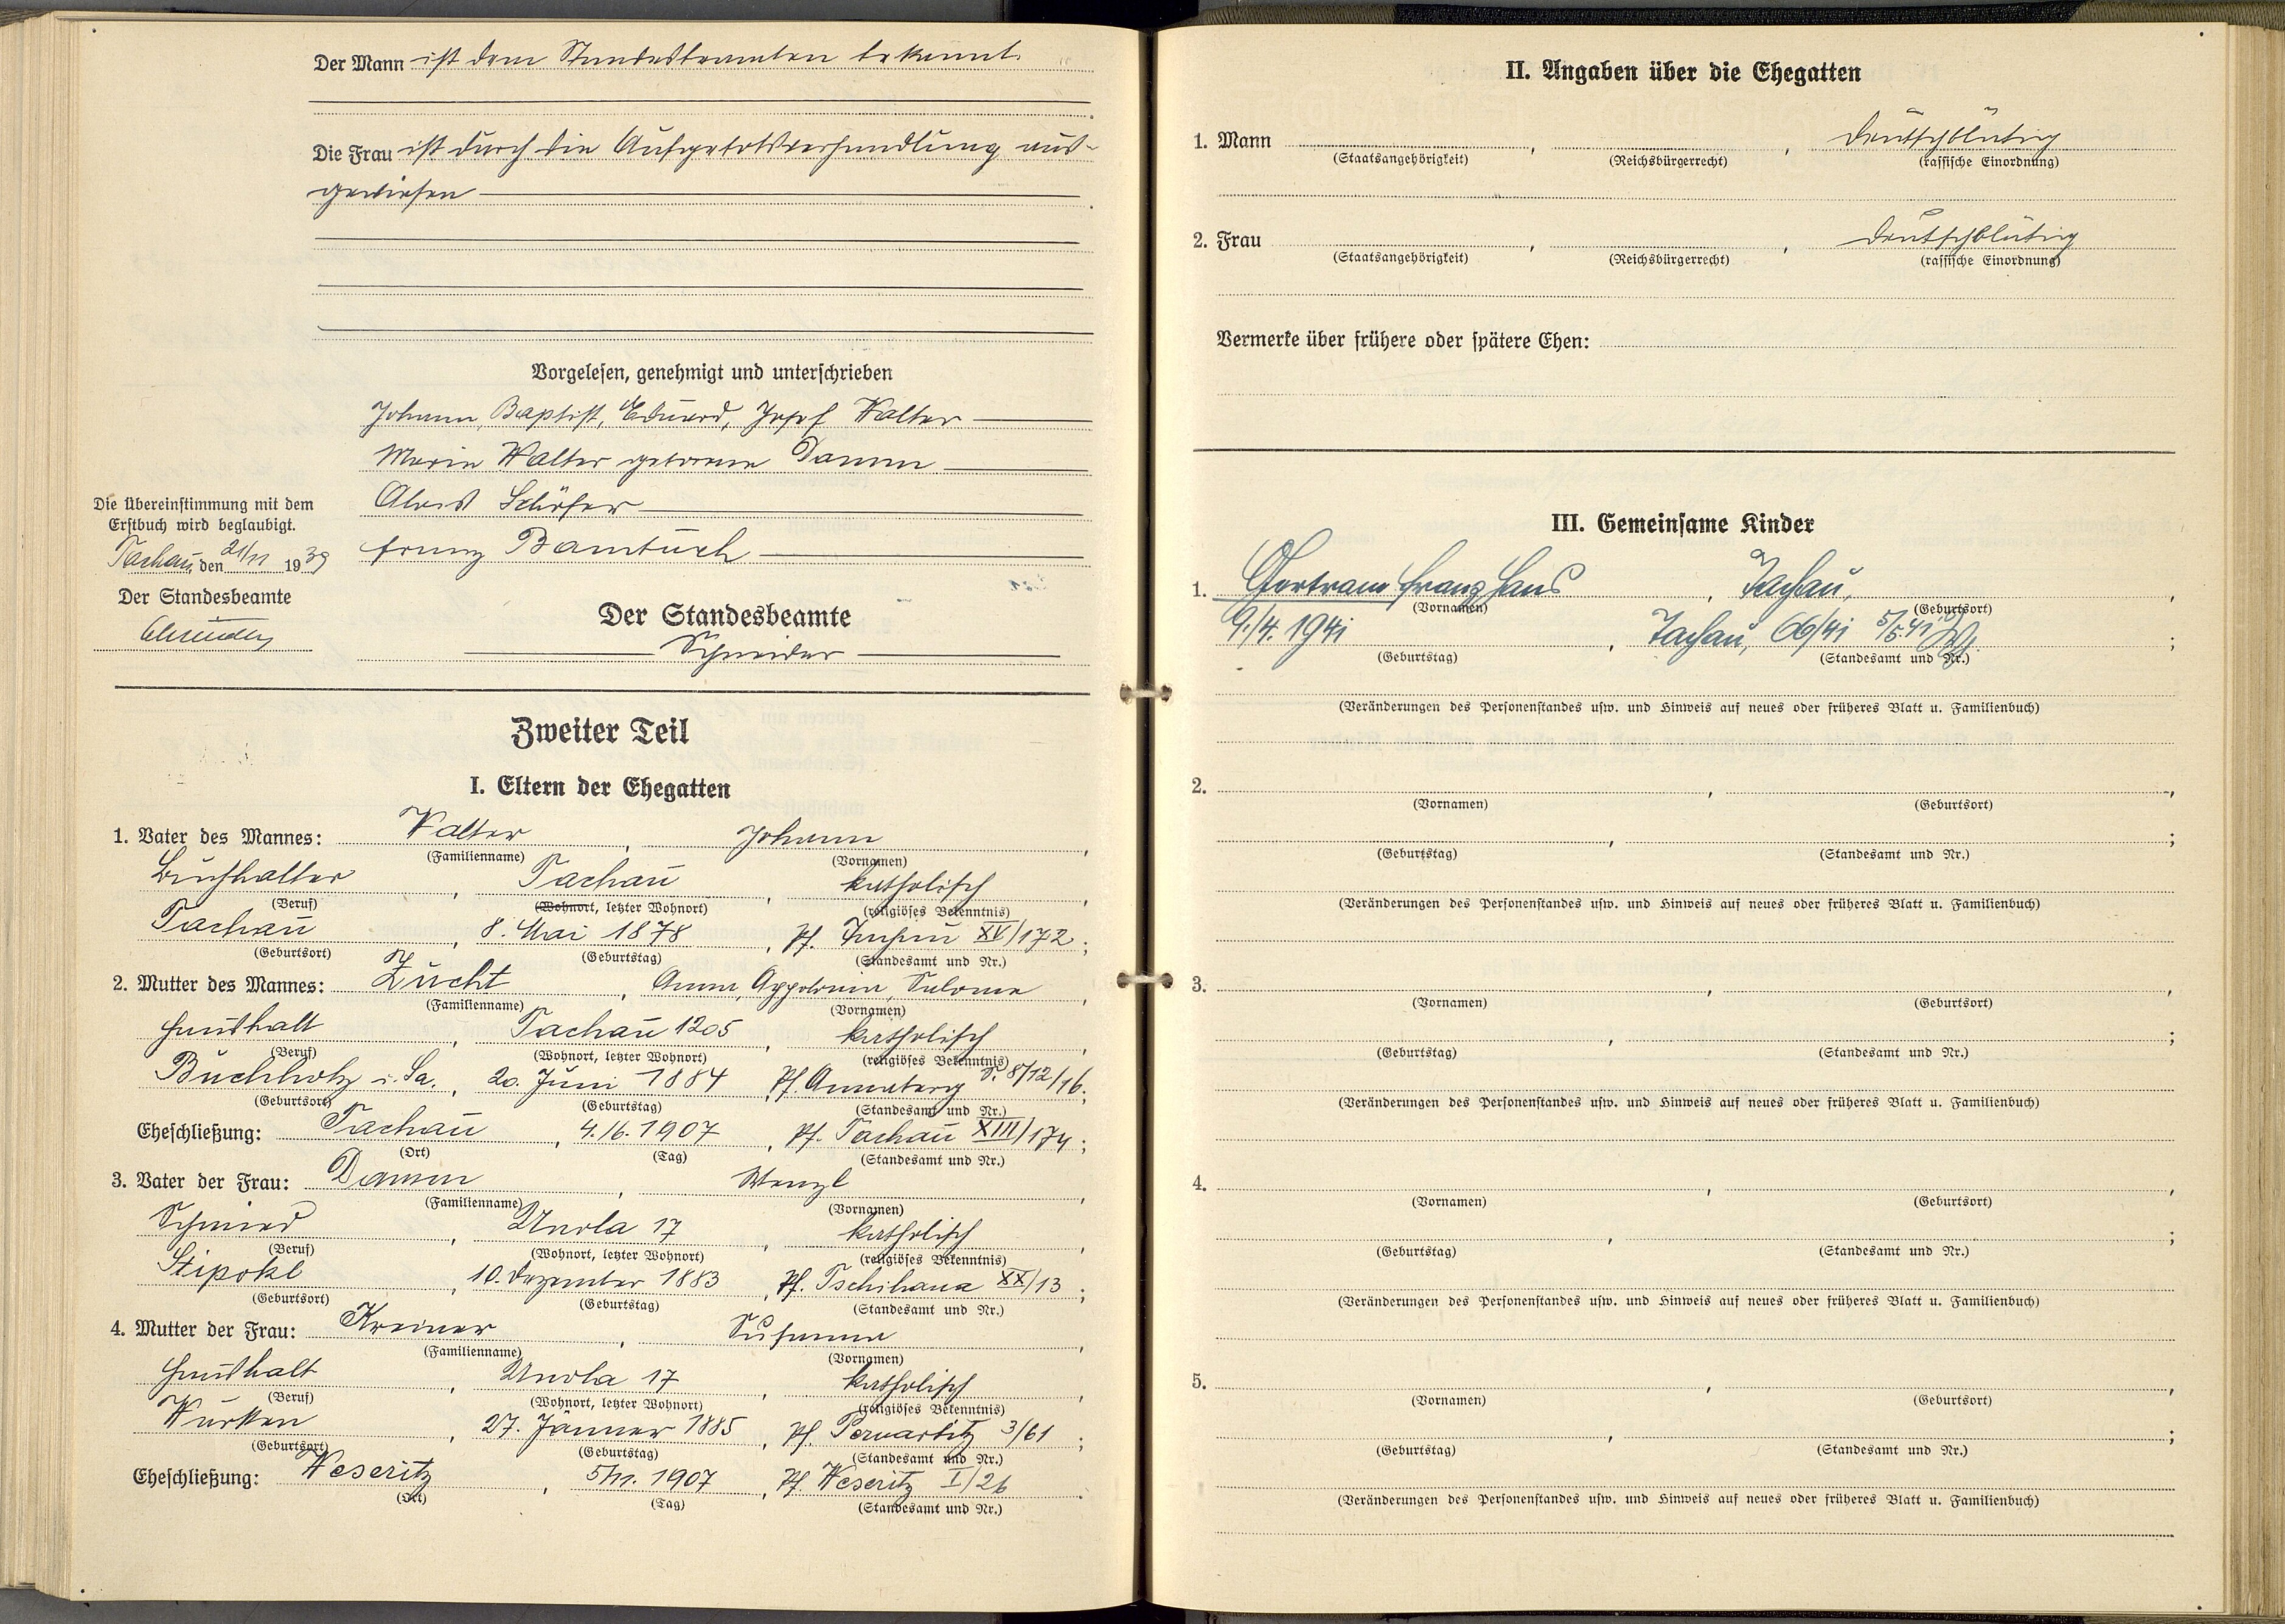 Der Mann ist dem Standesbeamten bekannt.
Die Frau ist durch die Aufgebotsverhandlung aus-
gewiesen
Vorgelesen, genehmigt und unterschrieben
Johann, Baptist, Eduard, Josef Walter
Maria Walter geborene Damm
Alois Schöfer
Franz Bambuch
Die Übereinstimmung mit dem
Erstbuch wird beglaubigt.
Tachau, den 21/11 1939
Der Standesbeamte
Der Standesbeamte
Schneider
Zweiter Teil
I. Eltern der Ehegatten
1. Vater des Mannes: Walter, Johann,
(Familienname) (Vornamen)
Buchhalter, Tachau, katholisch,
(Beruf) (Wohnort, letzter Wohnort) (religiöses Bekenntnis)
Tachau, 8. Mai 1878, Pf. Tachau XV/172;
(Geburtsort) (Geburtstag) (Standesamt und Nr.)
2. Mutter des Mannes: Zücht, Anna, Appolonia, Salome,
(Familienname) (Vornamen)
Haushalt, Tachau 1205, katholisch,
(Beruf) (Wohnort, letzter Wohnort) (religiöses Bekenntnis)
Buchholz i. Sa., 20. Juni 1884, Pf. Annaberg S. 8/12/16;
(Geburtsort) (Geburtstag) (Standesamt und Nr.)
Eheschließung: Tachau, 4./6. 1907, Pf. Tachau XIII/174;
(Ort) (Tag) (Standesamt und Nr.)
3. Vater der Frau: Damm, Wenzl,
(Familienname) (Vornamen)
Schmied, Unola 17, katholisch,
(Beruf) (Wohnort, letzter Wohnort) (religiöses Bekenntnis)
Stipokl, 10. Dezember 1883, Pf. Tschihana XX/13;
(Geburtsort) (Geburtstag) (Standesamt und Nr.)
4. Mutter der Frau: Kreiner, Susanna,
(Familienname) (Vornamen)
Haushalt, Unola 17, katholisch,
(Beruf) (Wohnort, letzter Wohnort) (religiöses Bekenntnis)
Wurken, 27. Jänner 1885, Pf. Pernartitz 3/61;
(Geburtsort) (Geburtstag) (Standesamt und Nr.)
Eheschließung: Weseritz, 5/11. 1907, Pf. Weseritz I/26.
(Ort) (Tag) (Standesamt und Nr.)
II. Angaben über die Ehegatten
1. Mann , , deutschblütig
(Staatsangehörigkeit) (Reichsbürgerrecht) (rassische Einordnung)
2. Frau , , deutschblütig
(Staatsangehörigkeit) (Reichsbürgerrecht) (rassische Einordnung)
Vermerke über frühere oder spätere Ehen:
III. Gemeinsame Kinder
1. Bertram Franz Hans, Tachau,
(Vornamen) (Geburtsort)
9./4. 1941, Tachau, 66/41 5/5.41;
(Geburtstag) (Standesamt und Nr.)
(Veränderungen des Personenstandes usw. und Hinweis auf neues oder früheres Blatt u. Familienbuch)
2. , ,
(Vornamen) (Geburtsort)
, ;
(Geburtstag) (Standesamt und Nr.)
(Veränderungen des Personenstandes usw. und Hinweis auf neues oder früheres Blatt u. Familienbuch)
3. , ,
(Vornamen) (Geburtsort)
, ;
(Geburtstag) (Standesamt und Nr.)
(Veränderungen des Personenstandes usw. und Hinweis auf neues oder früheres Blatt u. Familienbuch)
4. , ,
(Vornamen) (Geburtsort)
, ;
(Geburtstag) (Standesamt und Nr.)
(Veränderungen des Personenstandes usw. und Hinweis auf neues oder früheres Blatt u. Familienbuch)
5. , ,
(Vornamen) (Geburtsort)
, ;
(Geburtstag) (Standesamt und Nr.)
(Veränderungen des Personenstandes usw. und Hinweis auf neues oder früheres Blatt u. Familienbuch)